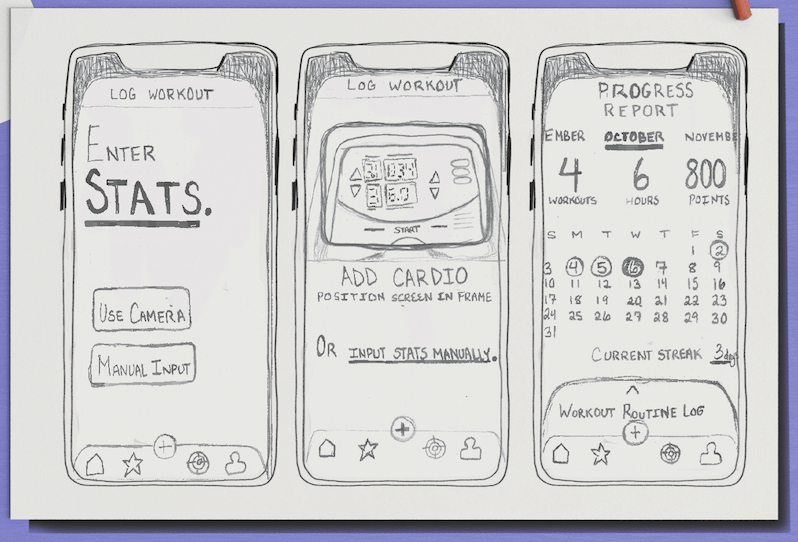 LOG WORKOUT
ENTER
STATS.
USE CAMERA
MANUAL INPUT
LOG WORKOUT
START
ADD CARDIO
POSITION SCREEN IN FRAME
OR INPUT STATS MANUALLY.
PROGRESS
REPORT
EMBER OCTOBER NOVEMBE
4 6 800
WORKOUTS HOURS POINTS
S M T W T F S
1 2
3 4 5 6 7 8 9
10 11 12 13 14 15 16
17 18 19 20 21 22 23
24 25 26 27 28 29 30
31
CURRENT STREAK 3days
WORKOUT ROUTINE LOG